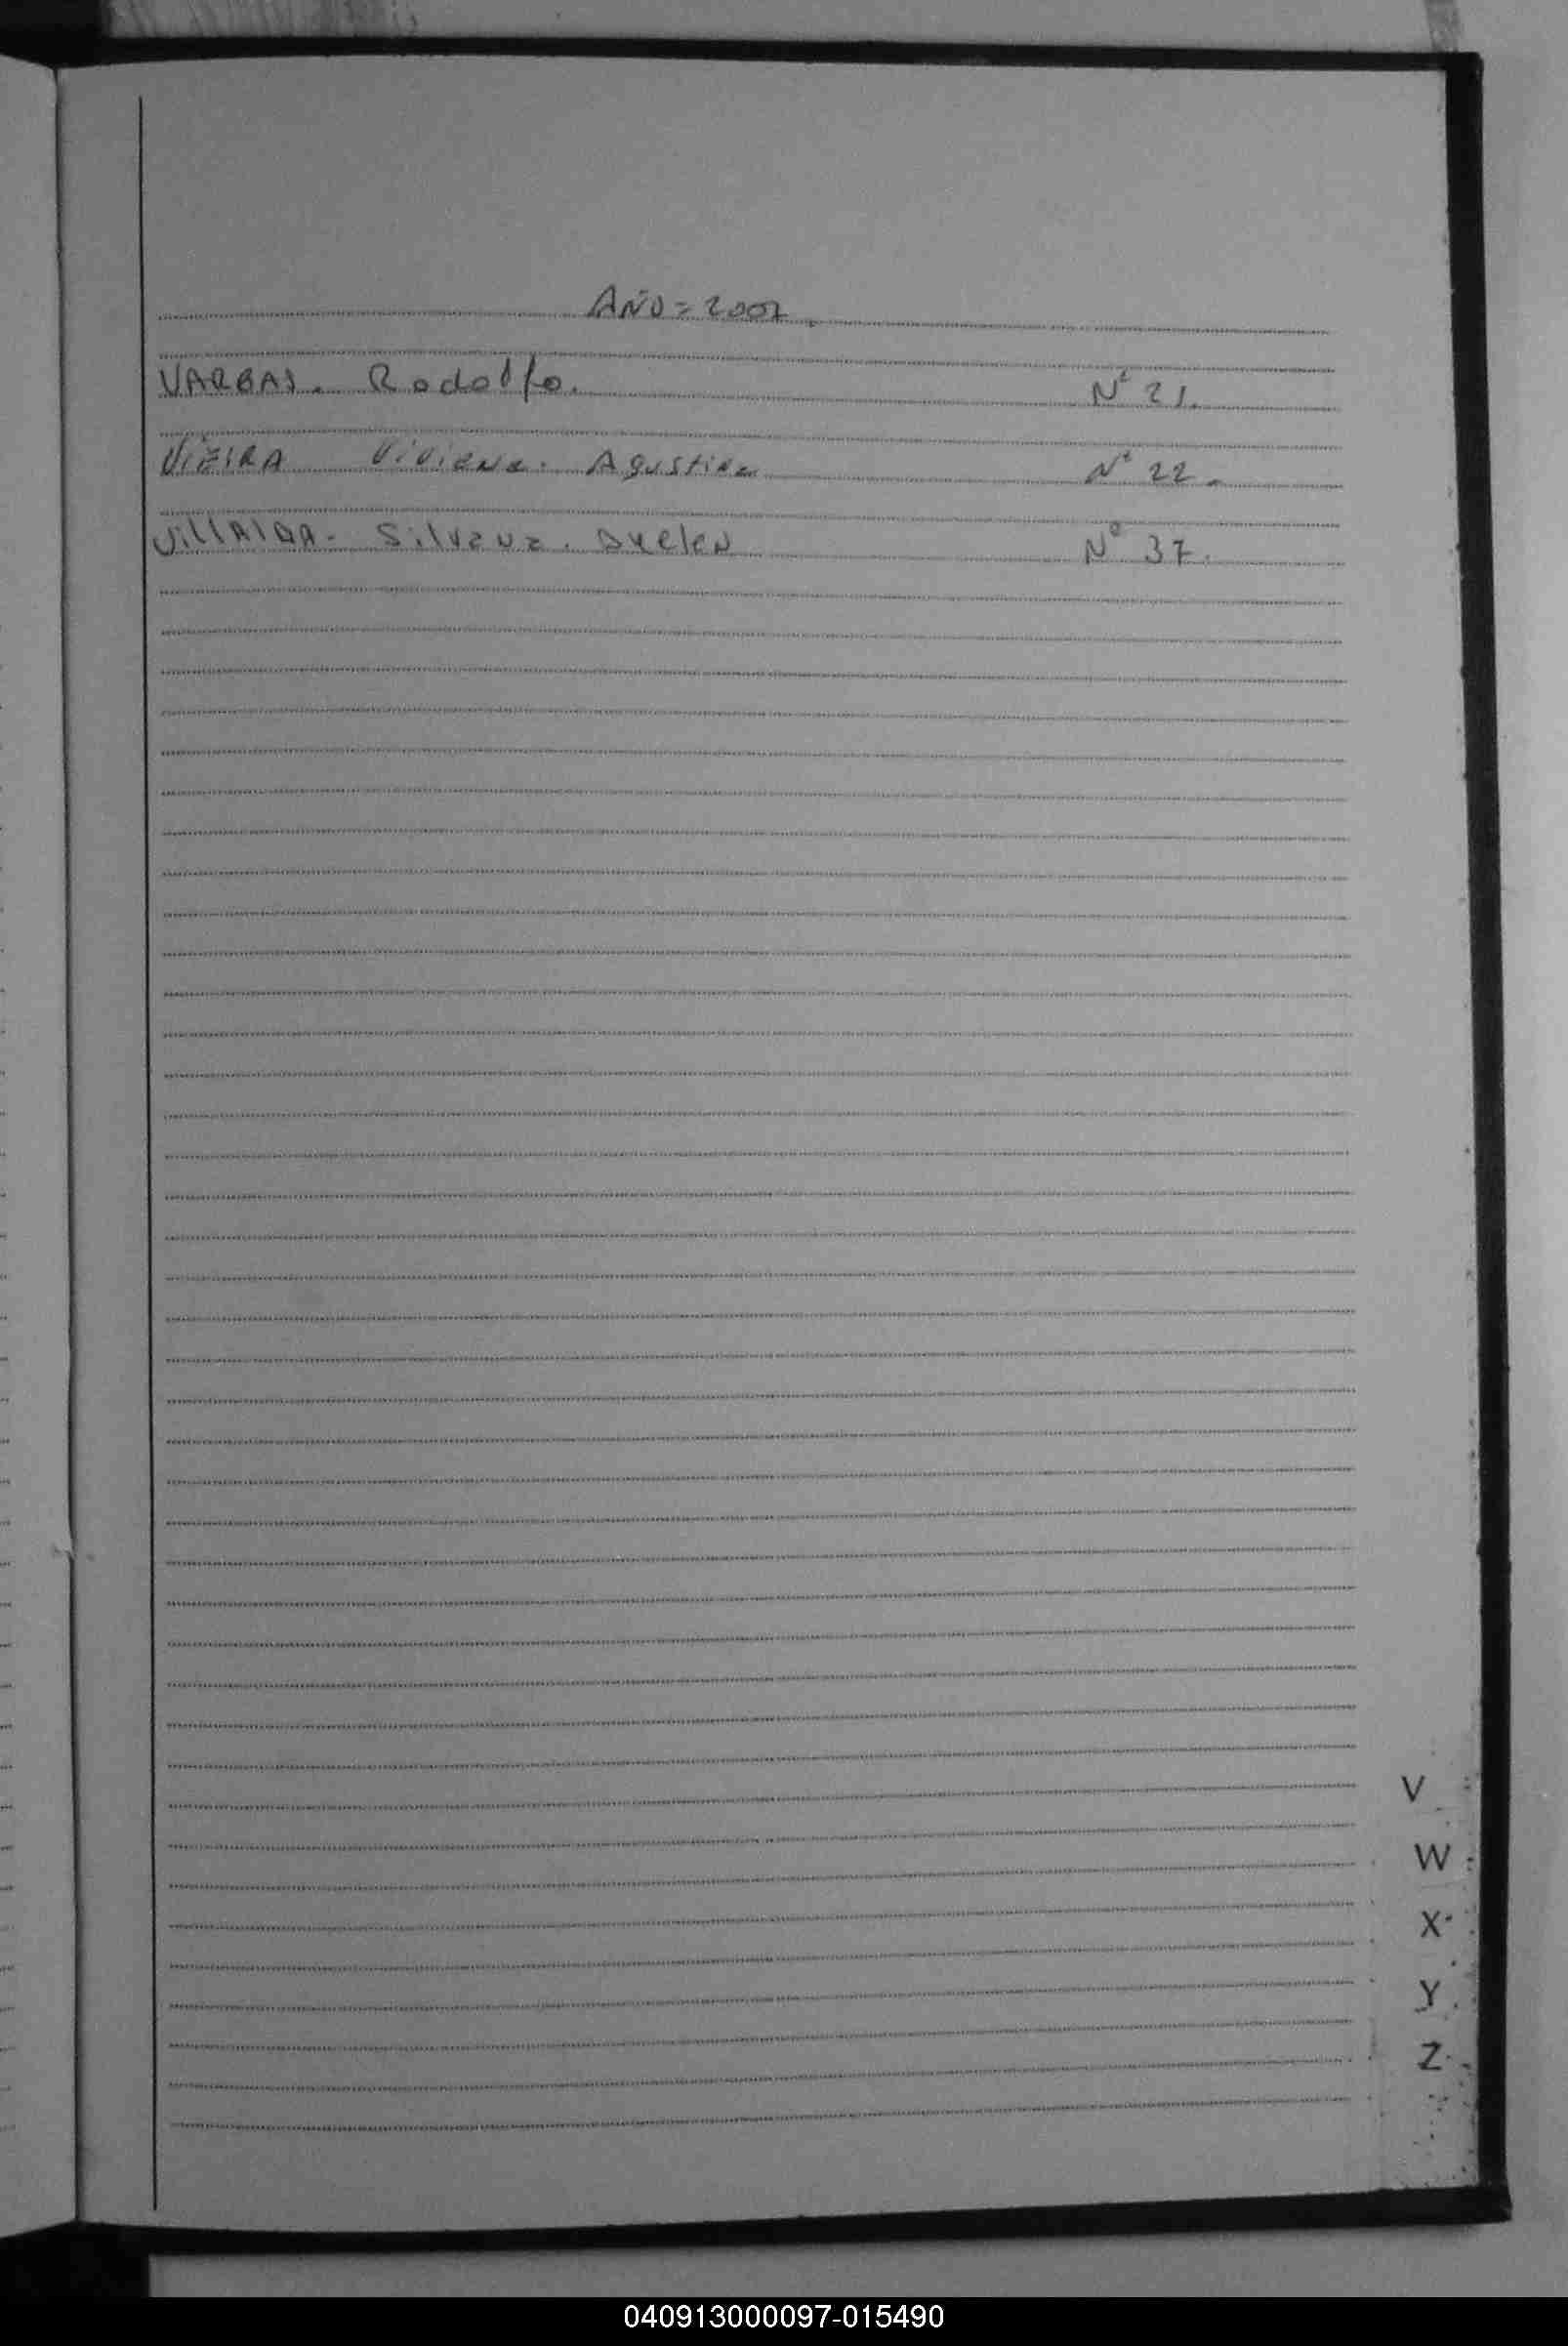 AÑO = 2007.
VARGAS. Rodolfo. Nº 21.
VIEIRA Viviana. Agustina Nº 22.
VillAlBA. Silvana. Suelen Nº 37.
V
W
X
Y
Z
040913000097-015490